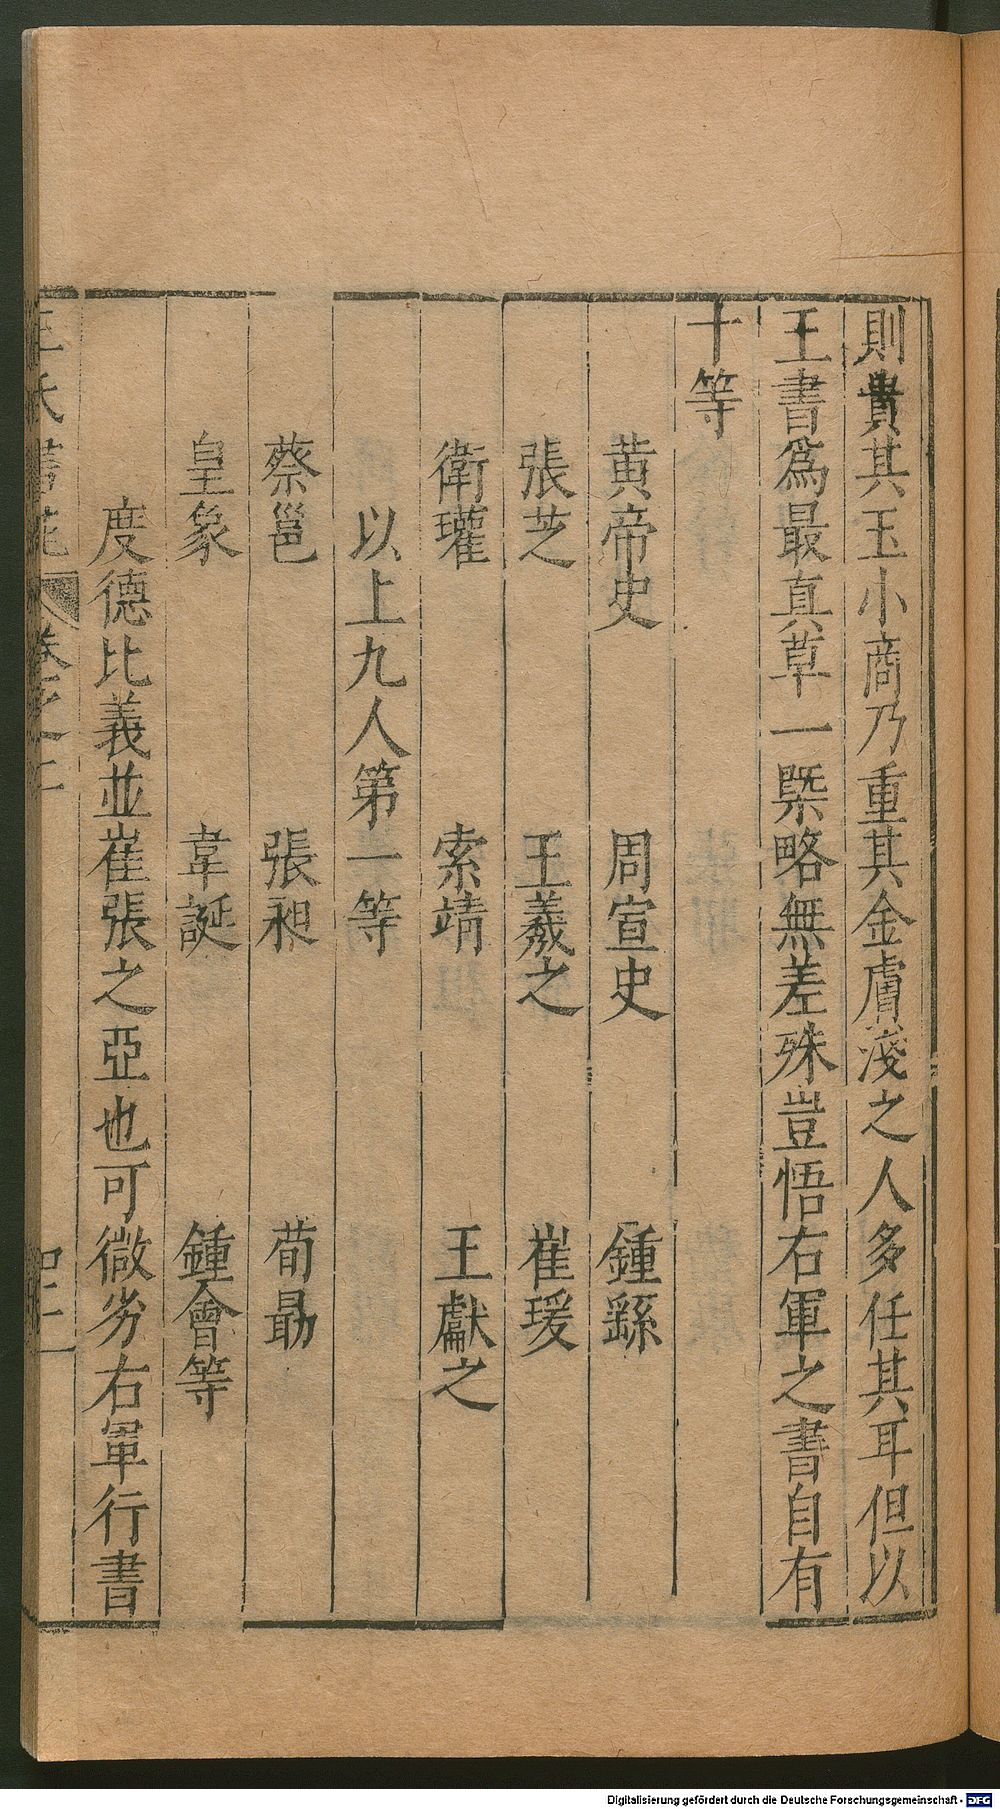 則貴其玉小商乃重其金膚淺之人多任其耳但以
王書爲最真草一槩略無差殊豈悟右軍之書自有
十等
黄帝史 周宣史 鍾繇
張芝 王羲之 崔瑗
衛瓘 索靖 王獻之
以上九人第一等
蔡邕 張昶 荀勗
皇象 韋誕 鍾會等
度德比義並崔張之亞也可微劣右軍行書
王氏書苑 卷之二
四十一
Digitalisierung gefördert durch die Deutsche Forschungsgemeinschaft - DFG